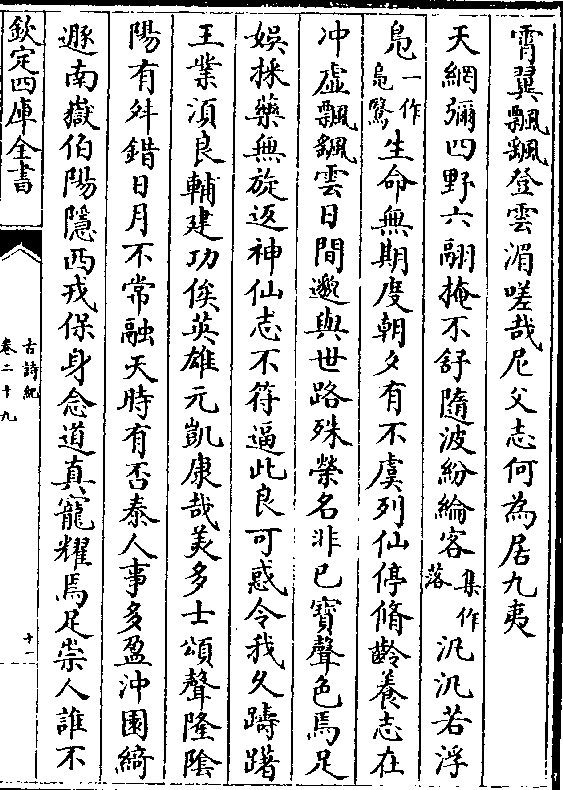 霄翼飄颻登雲湄嗟哉尼父志何為居九夷
天網彌四野六翮掩不舒隨波紛綸客集作落汎汎若浮
鳧一作鳧鷖生命無期度朝夕有不虞列仙停脩齡養志在
冲虛飄颻雲日間邈與世路殊榮名非已寶聲色焉足
娱採藥無旋返神仙志不符逼此良可惑令我久躊躇
王業湏良輔建功俟英雄元凱康哉美多士頌聲隆隂
陽有舛錯日月不常融天時有否泰人事多盈沖園綺
遯南嶽伯陽隱西戎保身念道真寵耀焉足崇人誰不
欽定四庫全書
古詩紀
卷二十九
十一